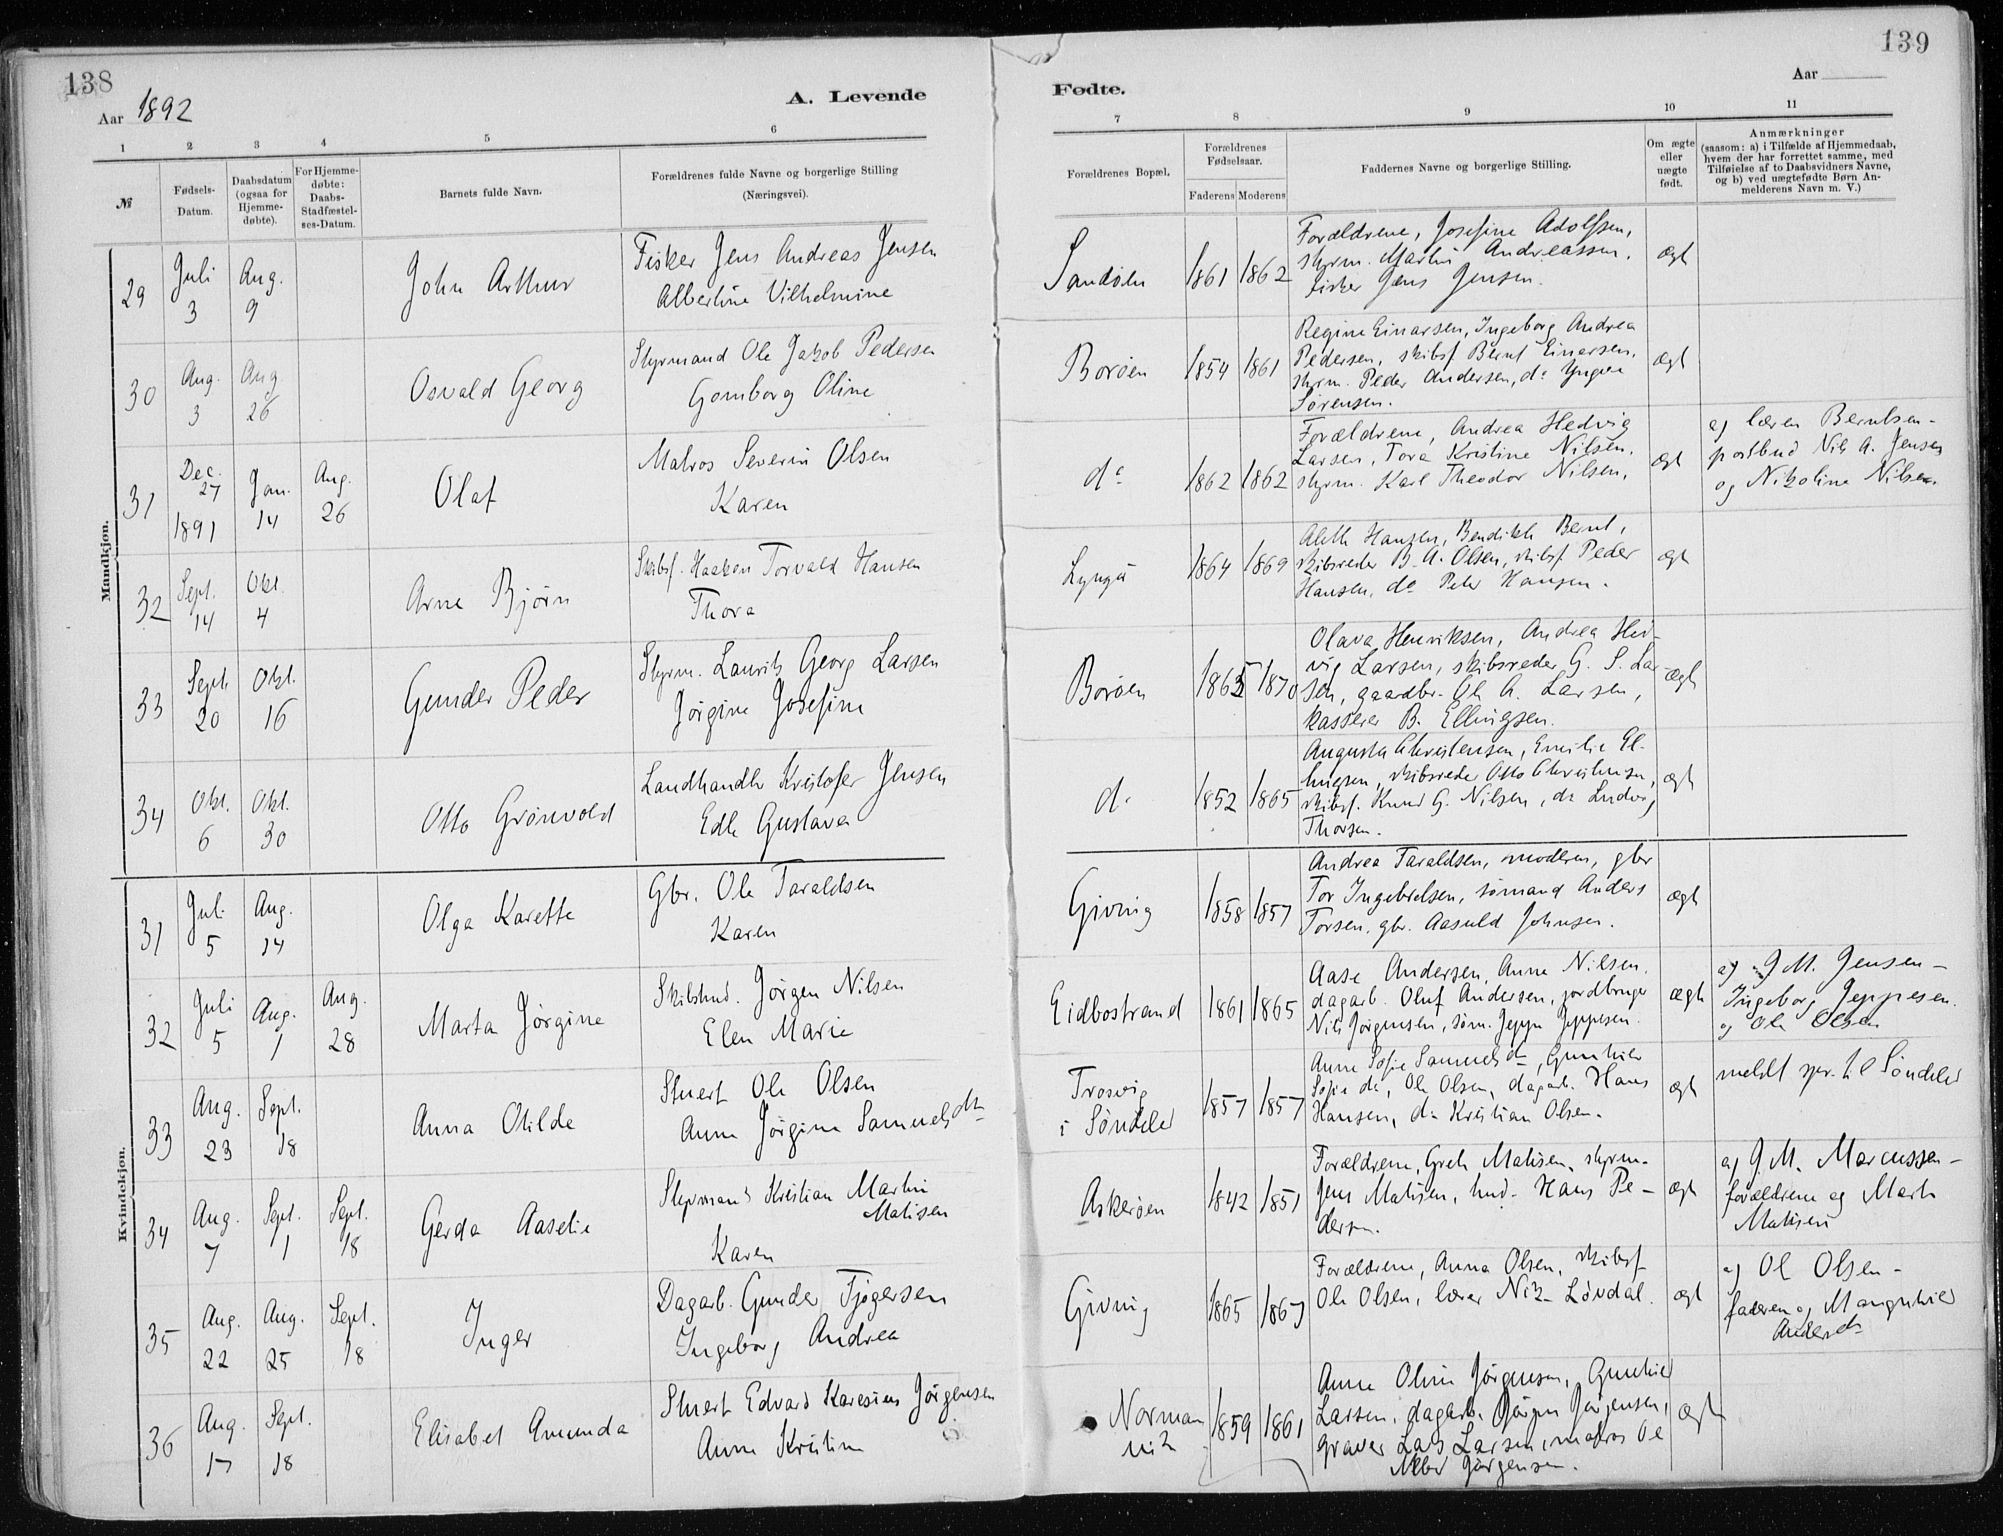 138
139
Aar 1892
A. Levende
Fødte.
Aar
1 2 3 4 5 6
7 8 9 10 11
№
Fødsels-Datum.
Daabsdatum (ogsaa for Hjemme-døbte).
For Hjemme-døbte: Daabs-Stadfæstel-ses-Datum.
Barnets fulde Navn.
Forældrenes fulde Navne og borgerlige Stilling
(Næringsvei).
Forældrenes Bopæl,
Forældrenes Fødselsaar.
Faderens Moderens
Faddernes Navne og borgerlige Stilling.
Om ægte eller uægte født.
Anmærkninger
(saasom: a) i Tilfælde af Hjemmedaab,
hvem der har forrettet samme, med
Tilføielse af to Daabsvidners Navne,
og b) ved uægtefødte Børn An-
melderens Navn m. V.)
Mandkjøn.
29 Juli 3 Aug. 9 John Arthur
Fisker Jens Andreas Jensen
Albertine Vilhelmine
Sandøen 1861 1862
Forældrene, Josefine Adolfsen,
styrm. Martin Andreassen,
fisker Jens Jensen.
ægt
30 Aug. 3 Aug. 26 Osvald Georg
Styrmand Ole Jakob Pedersen
Gomborg Oline
Borøen 1854 1861
Regine Einarsen, Ingeborg Andrea
Pedersen, skibsf. Bernt Einarsen,
styrm. Peder Andersen, do Yngvar
Sørensen.
ægt
31 Dec. 27 1891 Jan. 14 Aug. 26 Olaf
Matros Severin Olsen
Karen
do 1862 1862
Forældrene, Andrea Hedvig
Larsen, Tora Kristine Nilsen,
styrm. Karl Theodor Nilsen,
ægt
a) læren Berntsen -
postbud Nils A. Jensen
og Nikoline Nilsen
32 Sept. 14 Okt. 4 Arne Bjørn
Skibsf. Haakon Torvald Hansen
Thora
Lyngør 1864 1869
Aleth Hansen, Bendikte Bernt,
skibsreder B. A. Olsen, skibsf. Peder
Hansen, do Peter Hansen.
ægt
33 Sept. 20 Okt. 16 Gunder Peder
Styrm. Laurits Georg Larsen
Jørgine Josefine
Borøen 1863 1870
Olava Henriksen, Andrea Hed-
vig Larsen, skibsreder G. S. Lar-
sen, gaardbr. Ole A. Larsen,
kasserer B. Ellingsen.
ægt
34 Okt. 6 Okt. 30 Otto Grönvold
Landhandler Kristofer Jensen
Edle Gustava
do 1852 1865
Augusta Christensen, Emilie El-
lingsen, skibsreder Otto Christensen,
skibsf. Knud G. Nilsen, do Ludvig
Thorsen.
ægt
Kvindekjøn.
31 Juli 5 Aug. 14 Olga Karette
Gbr. Ole Taraldsen
Karen
Givning 1858 1857
Andrea Taraldsen, moderen, gbr
Tor Ingebretsen, sømand Anders
Torsen, gbr. Aasuld Johnsen.
ægt
32 Juli 5 Aug. 1 Aug. 28 Marta Jørgine
Skibstmd. Jørgen Nilsen
Elen Marie
Eidbostrand 1861 1865
Aase Andersen, Anne Nilsen,
dagarb. Oluf Andersen, jordbruger
Nils Jørgensen, søm. Jeppe Jeppesen.
ægte
a) J. M. Jensen -
Ingeborg Jeppesen
og Ole Olsen
33 Aug. 23 Sept. 18 Anna Otilde
Stuert Ole Olsen
Anne Jørgine Samuelsdtr
Trosvig
i Søndeled
1857 1857
Anne Sofie Samuelsdtr, Gunhild
Sofie do, Ole Olsen, dagarb. Hans
Hansen, do Kristian Olsen.
ægt
meldt spr. til Søndeled
34 Aug. 7 Sept. 1 Sept. 18 Gerda Aaselie
Styrmand Kristian Martin
Matisen
Karen
Askerøen 1842 1851
Forældrene, Grete Matisen, styrm.
Jens Matisen, tmd. Hans Pe-
dersen.
ægt
a) J. M. Marcussen -
forældrene og Marte
Matisen
35 Aug. 22 Aug. 25 Sept. 18 Inger
Dagarb. Gunder Tjøgersen
Ingeborg Andrea
Givning 1865 1867
Forældrene, Anna Olsen, skibsf.
Ole Olsen, lærer Nik. Løvdal.
ægt
a) Ole Olsen -
faderen og Mangnhild
Andersdtr
36 Aug. 17 Sept. 18 Elisabet Amunda
Stuert Edvard Karesius Jørgensen
Anne Kristine
Norman
vik
1859 1861
Anne Oline Jørgensen, Gunhild
Larsen, dagarb. Jørgen Jørgensen,
graver Lars Larsen, matros Ole
Jørgensen.
ægte